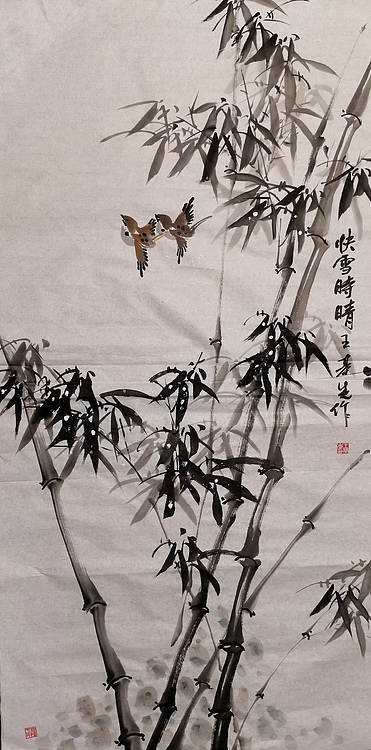 快雪時晴王先作